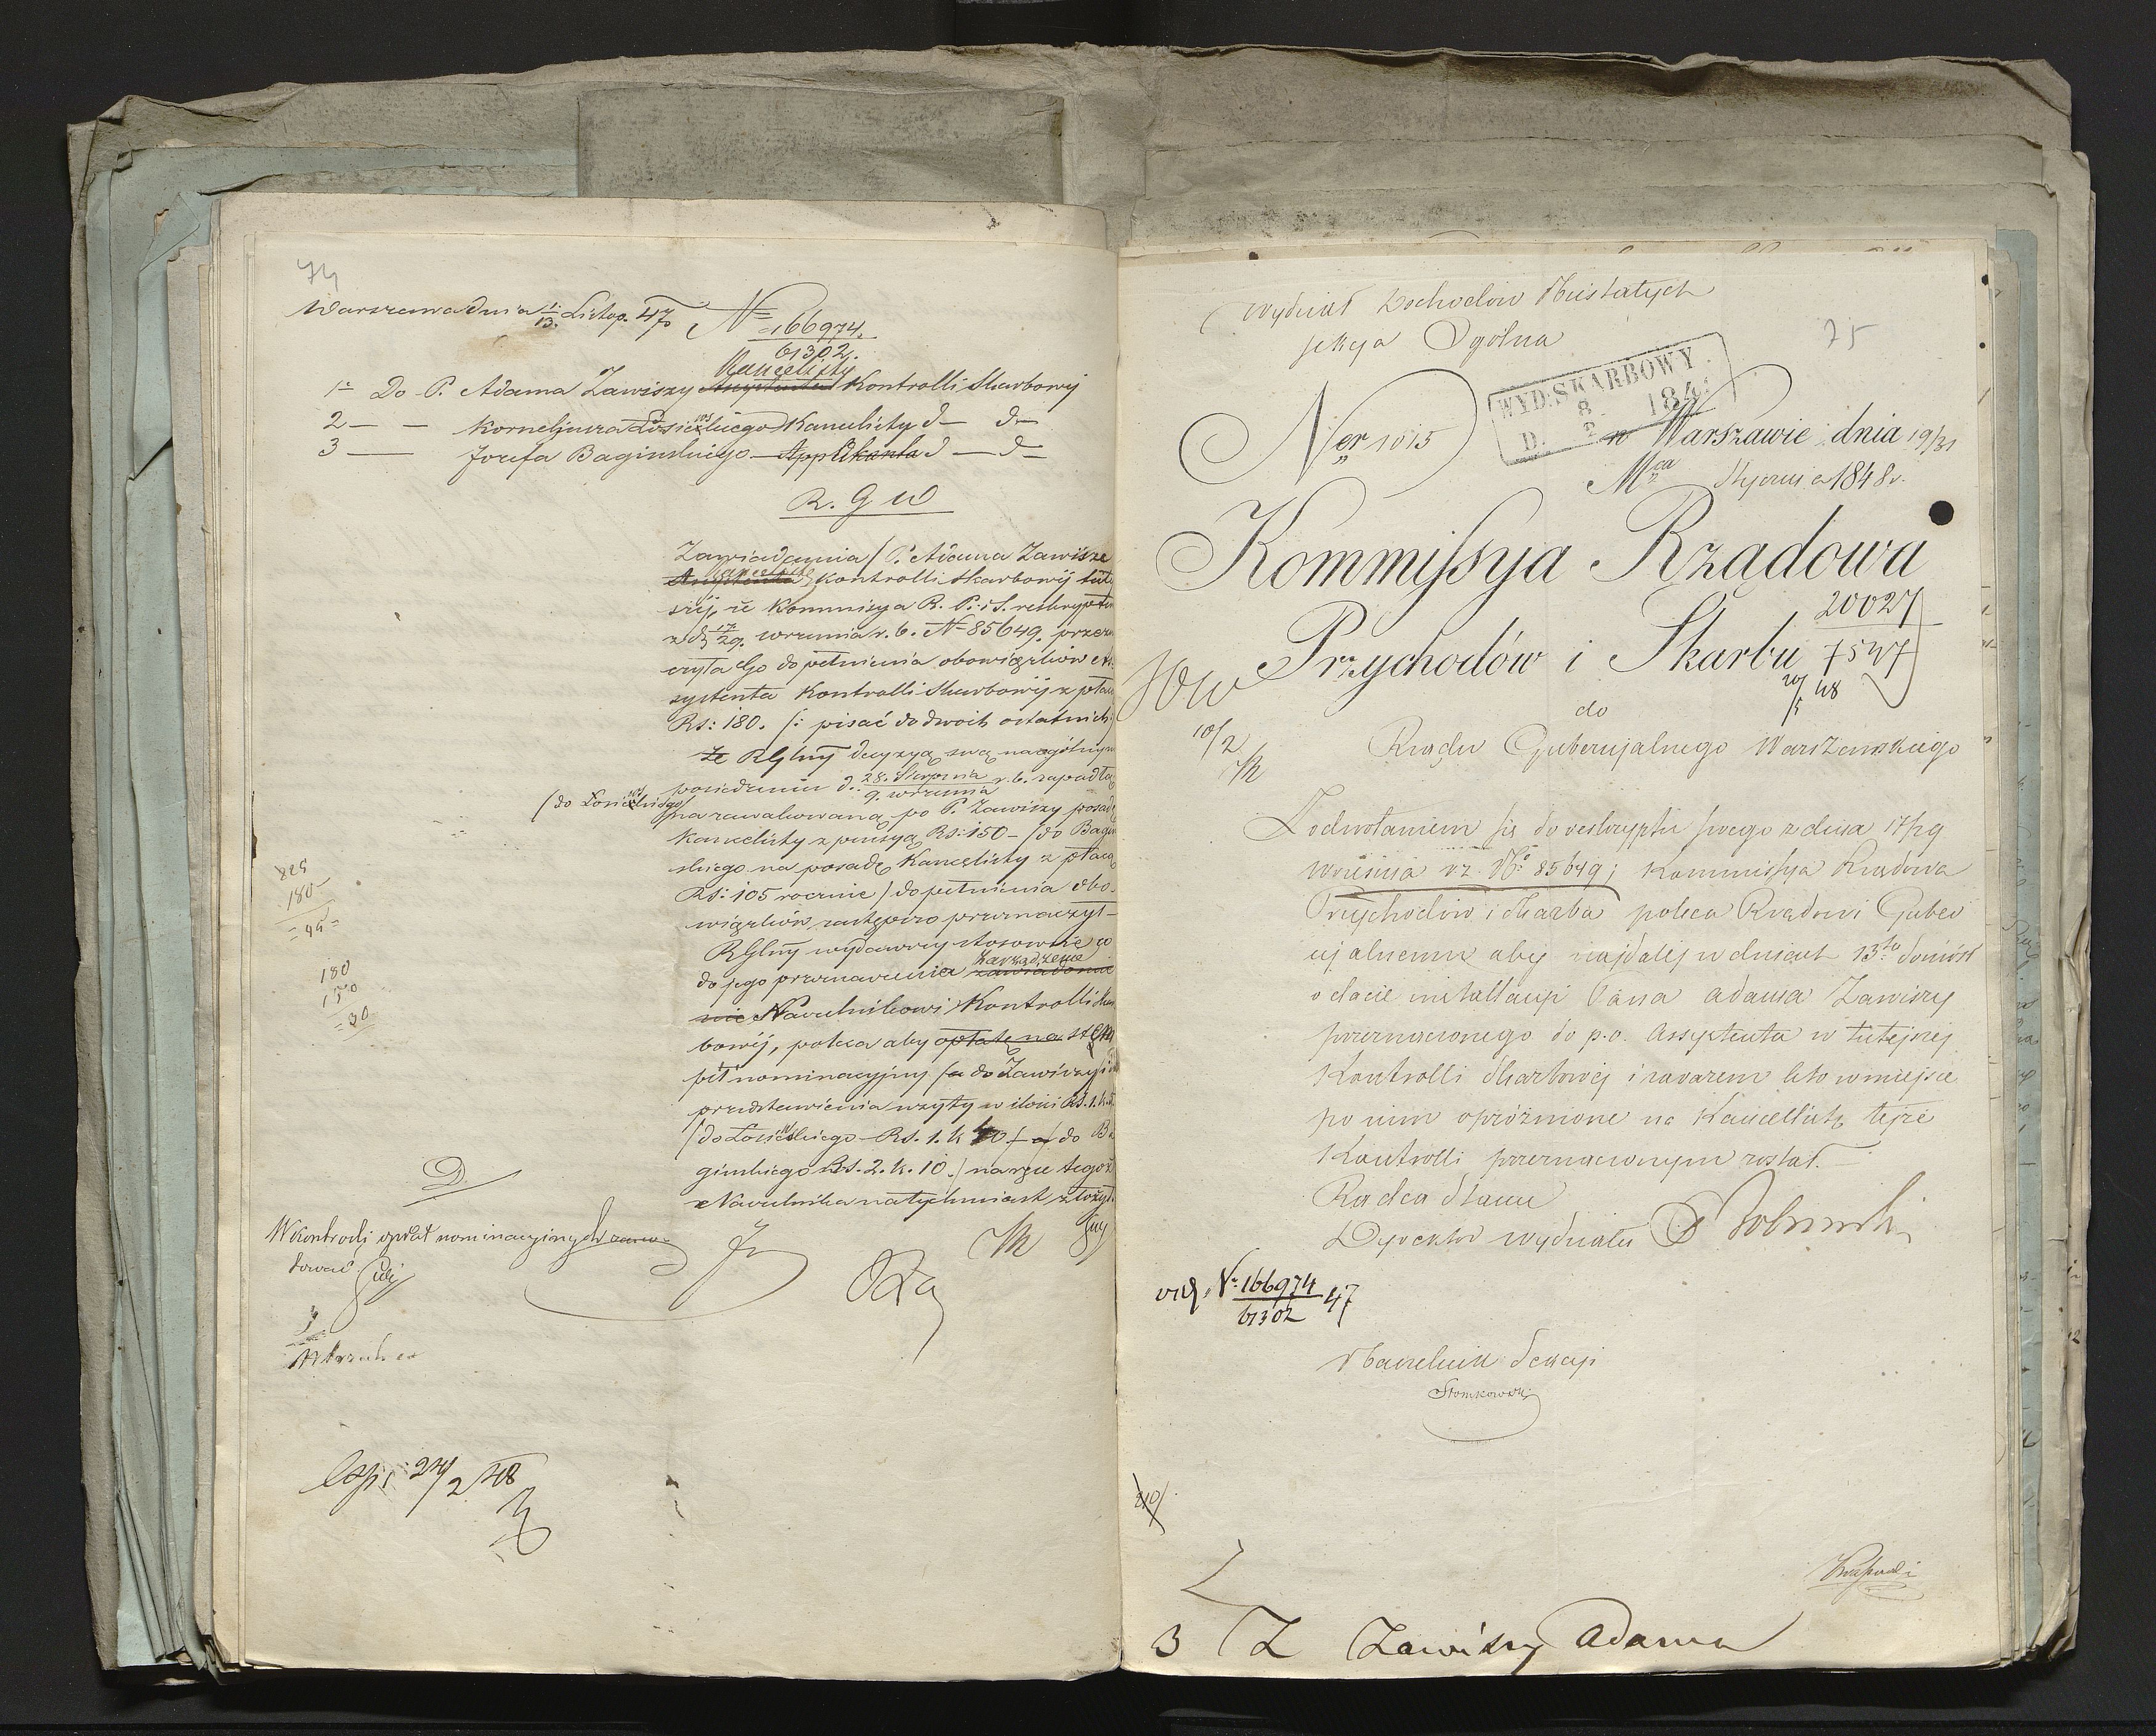 74
Warszawa dnia 1/13. Listop. 47
N= 166974.
61302.
Kancelisty
1= Do P. Adama Zawiszy Assystenta Kontrolli Skarbowej
2 — — Korneljusza Łosiewskiego Kancelisty d— d—
3 — Jozefa Baginskiego Applikanta d— d—
R. G W
Zawiadamia (P. Adama Zawisze
Kancelistę
Assystenta Kontrolli Skarbowej tut
szej, iż Kommisya R. P. i S. reskryptem
z d. 17/29. września r. b. N= 85649. przezna
czyła Go do pełnienia obowiązków As
systenta Kontrolli Skarbowej z płacą
Rs: 180. /: pisać do dwóch ostatnich
że RGlny decyzyą swą na ogólnym
posiedzeniu d. 28. Sierpnia/9. września r. b. zapadłą
(do Łosiewskiego) na zawakowaną po P. Zawiszy posadę
Kancelisty z pensyą Rs: 150 — (do Bagin
skiego na posadę Kancelisty z płacą
Rs: 105 rocznie) do pełnienia obo-
wiązków zastępczo przeznaczył —
RGlny wydawszy stosownie co
do jego przeznaczenia zarządzenie
zawiadomie
nie Naczelnikowi Kontrolli Skar
bowej, poleca aby opłatę na stem
pel nominacyjny (a do Zawiszy i
przedstawienia wzięty w ilości Rs. 1. k.
(do Łosiewskiego Rs. 1. k 40 / a / do Ba
ginskiego Rs. 2. k. 10.) na ręce tegoż
Naczelnika natychmiast złożył.
180
180
150
= 30
D
W Kontroli opłat nominacyjnych zano-
tować
24/2 48
Wydział Dochodów Niestałych
Sekcya Ogólna
75
WYD: SKARBOWY
D. 8 2 184
Ner 1015
w Warszawie dnia 19/31
Mca Stycznia 1848 r.
Kommissya Rządowa
Przychodów i Skarbu
20027
7547
48
10/2
do
Rządu Gubernjalnego Warszawskiego
Z odwołaniem się do reskryptu swego z dnia 17/29
Września r.z. No: 85649; Kommissya Rządowa
Przychodów i Skarbu poleca Rządowi Guber
njalnemu aby najdalej w dniach 13tu doniósł
o dacie installacyi Pana Adama Zawiszy
przeznaczonego do p.o. Assystenta w tutejszej
Kontrolli Skarbowej i zarazem kto w miejsce
po nim opróżnione na Kancellistę tejże
Kontrolli przeznaczonym został. —
Radca Stanu
Dyrektor Wydziału
N: 166974/61302 47
Naczelnik Sekcyi
Słomkowski
3 Z Zawiszy Adama